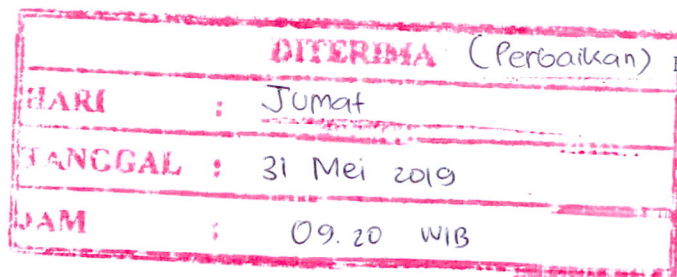 DITERIMA (Perbaikan)
HARI : Jumat
TANGGAL : 31 Mei 2019
JAM : 09.20 WIB